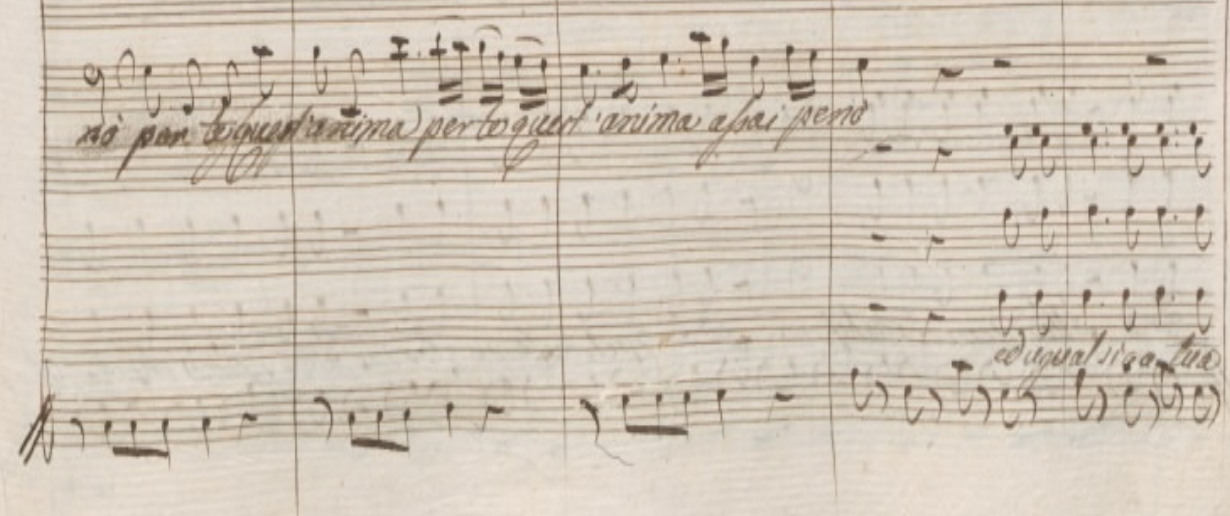 nò per te quest'anima per te quest'anima assai penò
ed ugual sia a tua